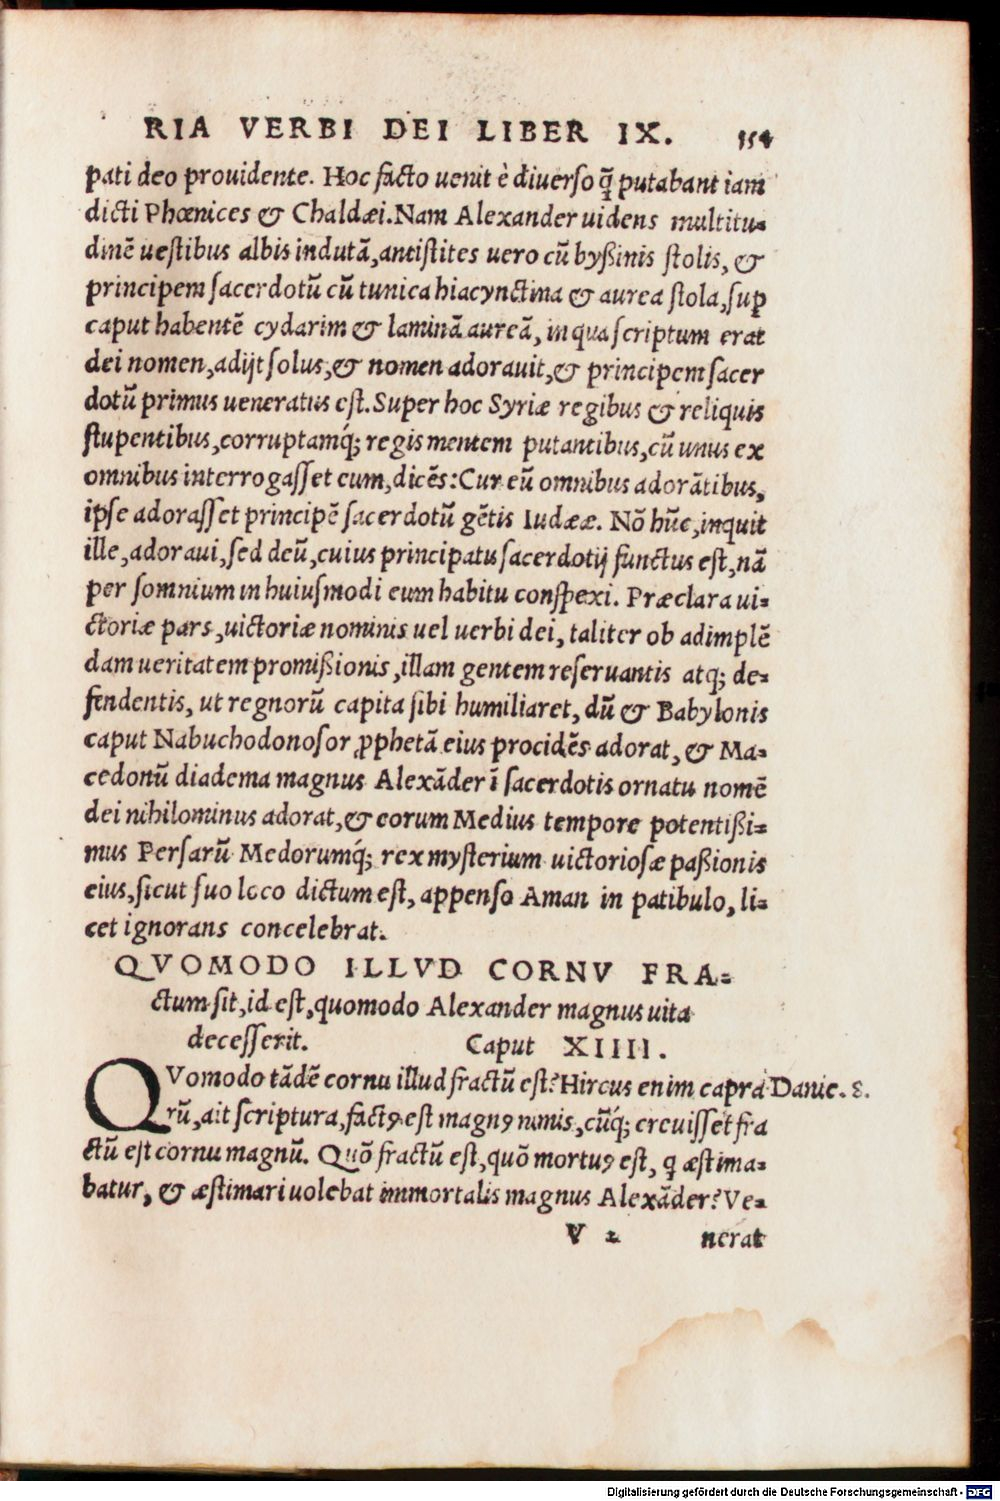 RIA VERBI DEI LIBER IX. 154
pati deo prouidente. Hoc facto uenit è diuerso q̃ putabant iam
dicti Phœnices & Chaldæi. Nam Alexander uidens multitu-
dinẽ uestibus albis indutã, antistites uero cũ byßinis stolis, &
principem sacerdotũ cũ tunica hiacynctina & aurea stola, suꝑ
caput habentẽ cydarim & laminã aureã, in qua scriptum erat
dei nomen, adijt solus, & nomen adorauit, & principem sacer
dotũ primus ueneratus est. Super hoc Syriæ regibus & reliquis
stupentibus, corruptamq́; regis mentem putantibus, cũ unus ex
omnibus interrogasset eum, dicẽs: Cur eũ omnibus adorãtibus,
ipse adorasset principẽ sacerdotũ gẽtis Iudææ. Nõ hũc, inquit
ille, adoraui, sed deũ, cuius principatu sacerdotij functus est, nã
per somnium in huiusmodi eum habitu conspexi. Præclara ui-
ctoriæ pars, uictoriæ nominis uel uerbi dei, taliter ob adimplẽ
dam ueritatem promißionis, illam gentem reseruantis atq; de-
fendentis, ut regnorũ capita sibi humiliaret, dũ & Babylonis
caput Nabuchodonosor ꝓphetã eius procidẽs adorat, & Ma-
cedonũ diadema magnus Alexãder ĩ sacerdotis ornatu nomẽ
dei nihilominus adorat, & eorum Medius tempore potentißi-
mus Persarũ Medorumq́; rex mysterium uictoriosæ paßionis
eius, sicut suo loco dictum est, appenso Aman in patibulo, li-
cet ignorans concelebrat.
QVOMODO ILLVD CORNV FRA-
ctum sit, id est, quomodo Alexander magnus uita
decesserit. Caput XIIII.
QVomodo tãdẽ cornu illud fractũ est? Hircus enim capra Danie. 8.
rũ, ait scriptura, factꝰ est magnꝰ nimis, cũq́; creuisset fra
ctũ est cornu magnũ. Quõ fractũ est, quõ mortuꝰ est, q̃ æstima-
batur, & æstimari uolebat immortalis magnus Alexãder? Ve-
V 2 nerat
Digitalisierung gefördert durch die Deutsche Forschungsgemeinschaft - DFG